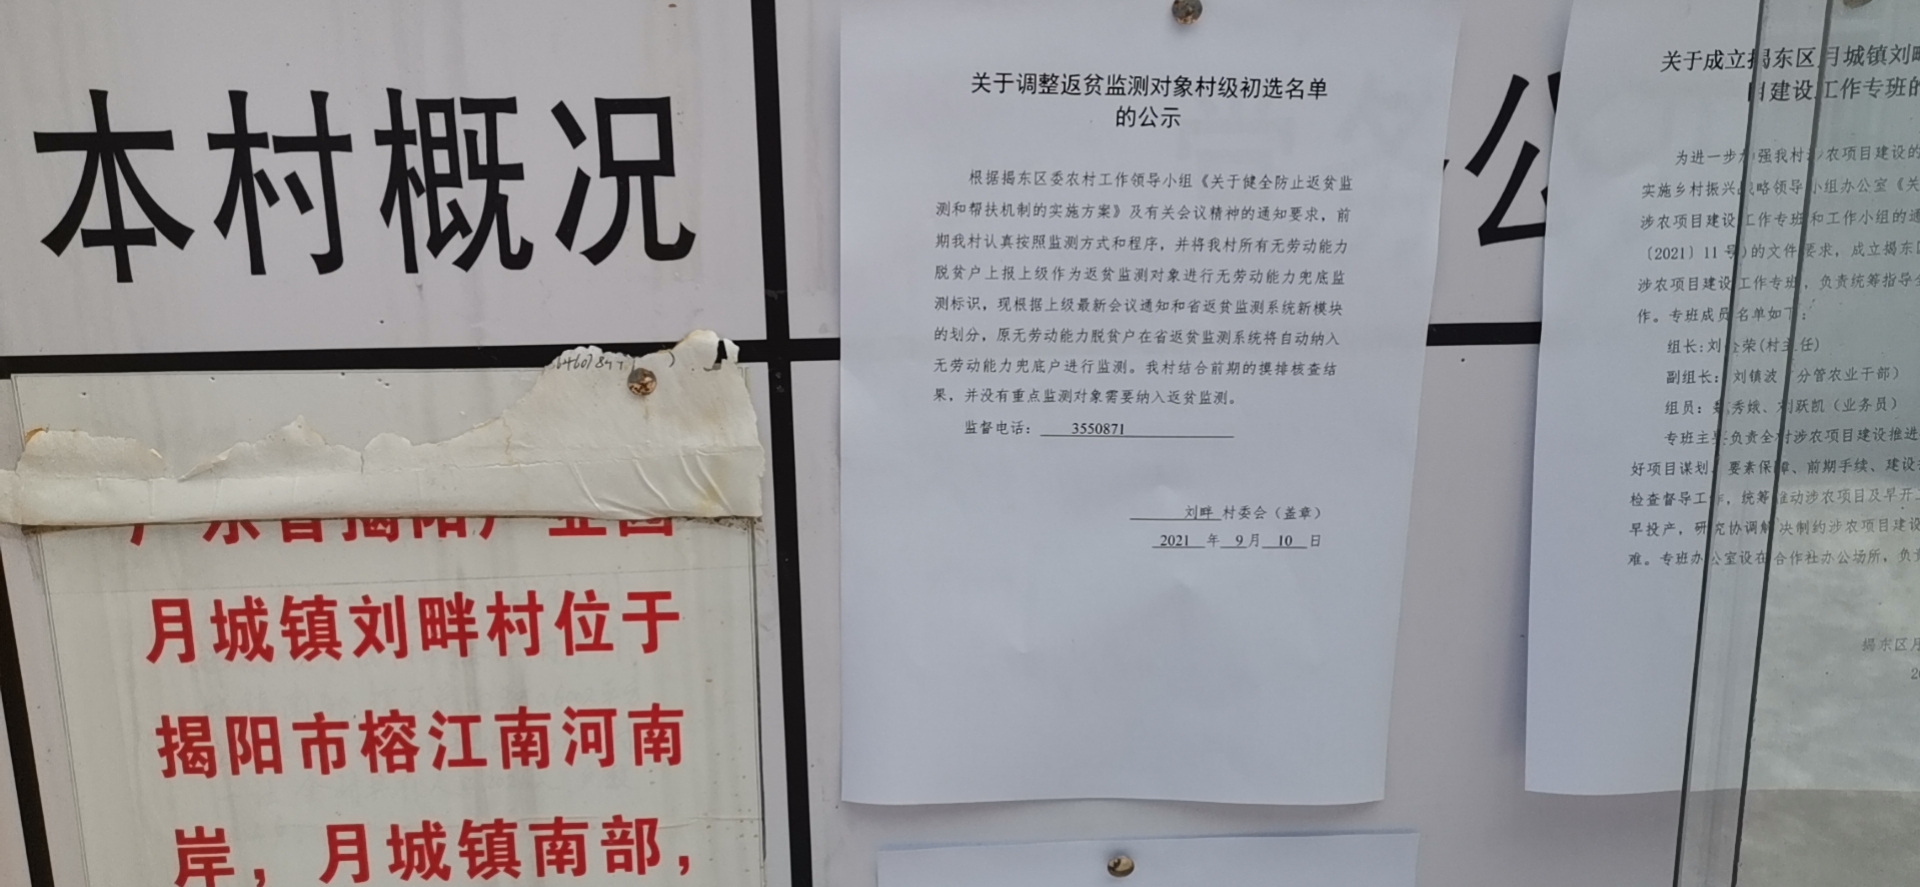 本村概况
月城镇刘畔村位于
揭阳市榕江南河南
岸，月城镇南部，
关于调整返贫监测对象村级初选名单
的公示
根据揭东区委农村工作领导小组《关于健全防止返贫监
测和帮扶机制的实施方案》及有关会议精神的通知要求，前
期我村认真按照监测方式和程序，并将我村所有无劳动能力
脱贫户上报上级作为返贫监测对象进行无劳动能力兜底监
测标识，现根据上级最新会议通知和省返贫监测系统新模块
的划分，原无劳动能力脱贫户在省返贫监测系统将自动纳入
无劳动能力兜底户进行监测。我村结合前期的摸排核查结
果，并没有重点监测对象需要纳入返贫监测。
监督电话： 3550871
刘畔 村委会（盖章）
2021 年 9 月 10 日
公
关于成立揭东区月城镇刘畔
目建设工作专班的
为进一步加强我村涉农项目建设的
实施乡村振兴战略领导小组办公室《关
涉农项目建设工作专班和工作小组的通
〔2021〕11 号)的文件要求，成立揭东区
涉农项目建设工作专班，负责统筹指导全
作。专班成员名单如下：
组长:刘 荣(村主任)
副组长： 刘镇波（分管农业干部）
组员： 秀娥、刘跃凯（业务员）
专班主要负责全村涉农项目建设推进
好项目谋划、要素保障、前期手续、建设
检查督导工作，统筹推动涉农项目及早开工
早投产，研究协调解决制约涉农项目建设
难。专班办公室设在合作社办公场所，负责
揭东区月
20